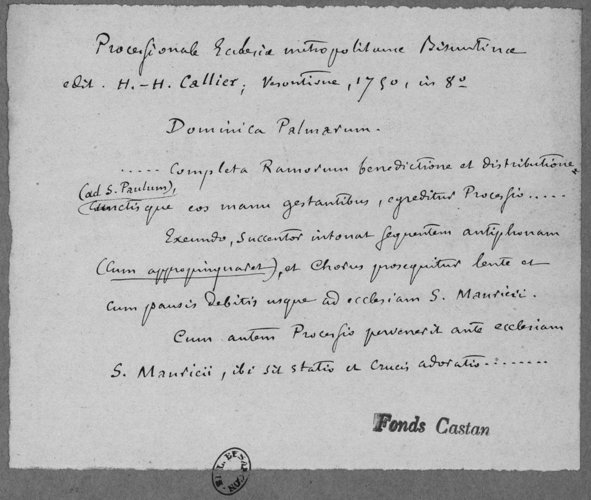 Processionale Ecclesiæ metropolitanæ Bisuntinæ
edit. H.-H. Callier; Vesontione, 1750, in 8º
Dominica Palmarum.
..... Completa Ramorum benedictione et distributione,
(ad S. Paulum),
cunctisque eos manu gestantibus, egreditur Processio.....
Exeundo, Succentor intonat sequentem antiphonam
(Cum appropinquaret), et Chorus prosequitur lente et
cum pausis debitis usque ad ecclesiam S. Mauricii.
Cum autem Processio pervenerit ante ecclesiam
S. Mauricii, ibi sit statio et Crucis adoratio........
Fonds Castan
BIBL. BESANÇON